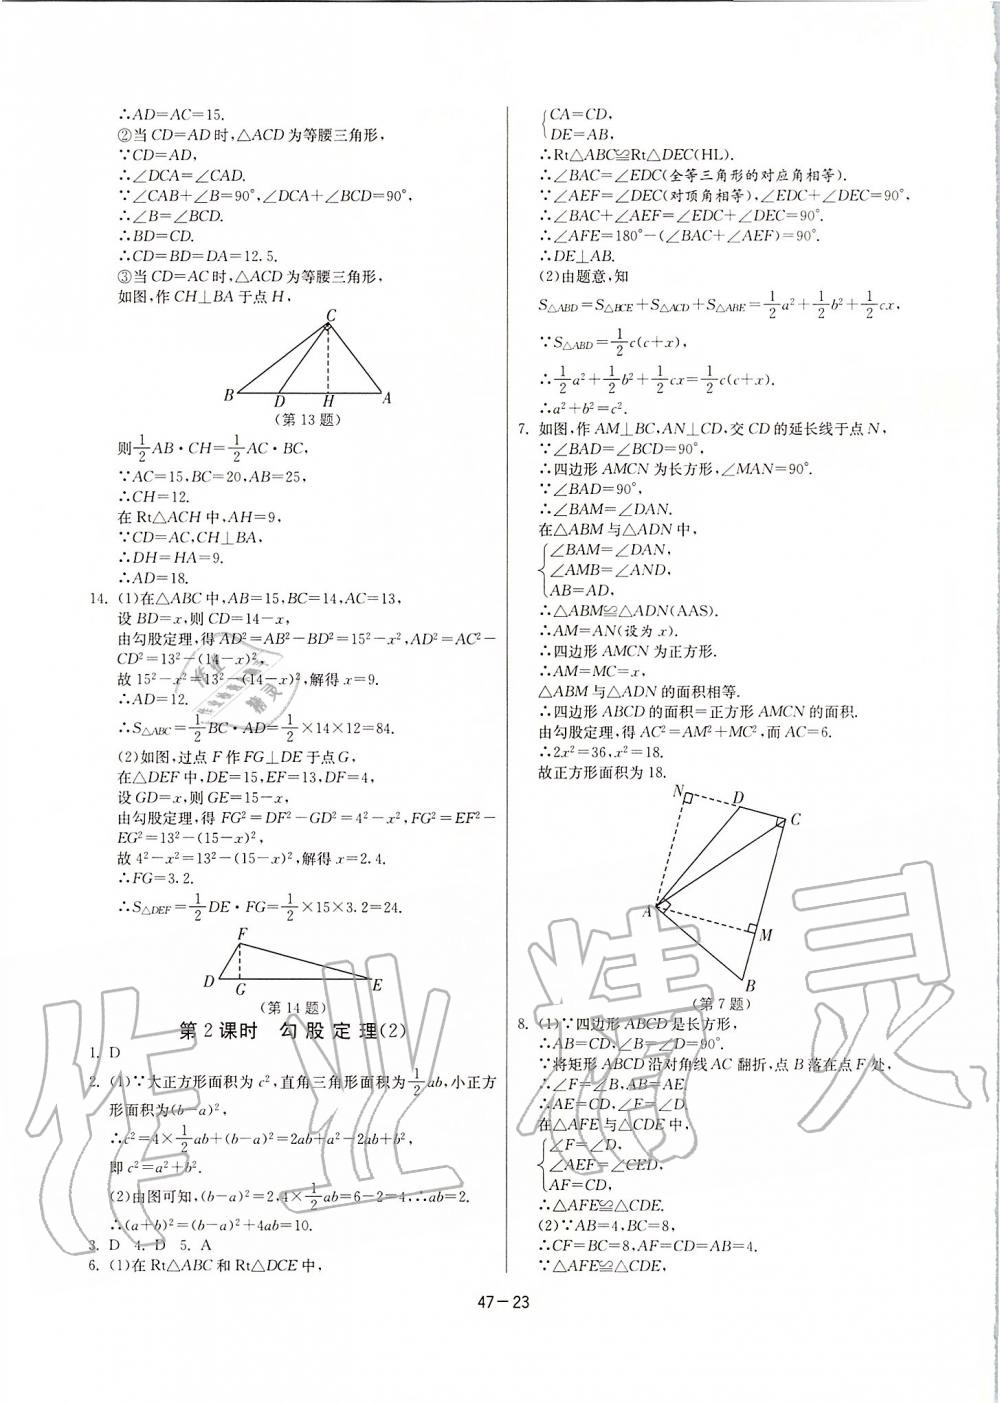 ∴AD=AC=15.
②当 CD=AD 时,△ACD 为等腰三角形,
∵CD=AD,
∴∠DCA=∠CAD.
∵∠CAB+∠B=90°,∠DCA+∠BCD=90°,
∴∠B=∠BCD.
∴BD=CD.
∴CD=BD=DA=12.5.
③当 CD=AC 时,△ACD 为等腰三角形,
如图,作 CH⊥BA 于点 H,
C
B D H A
(第 13 题)
则 1/2 AB·CH=1/2 AC·BC,
∵AC=15,BC=20,AB=25,
∴CH=12.
在 Rt△ACH 中,AH=9,
∵CD=AC,CH⊥BA,
∴DH=HA=9.
∴AD=18.
14. (1)在△ABC 中,AB=15,BC=14,AC=13,
设 BD=x,则 CD=14-x,
由勾股定理,得 AD²=AB²-BD²=15²-x²,AD²=AC²-
CD²=13²-(14-x)²,
故 15²-x²=13²-(14-x)²,解得 x=9.
∴AD=12.
∴S△ABC=1/2 BC·AD=1/2×14×12=84.
(2)如图,过点 F 作 FG⊥DE 于点 G,
在△DEF 中,DE=15,EF=13,DF=4,
设 GD=x,则 GE=15-x,
由勾股定理,得 FG²=DF²-GD²=4²-x²,FG²=EF²-
EG²=13²-(15-x)²,
故 4²-x²=13²-(15-x)²,解得 x=2.4.
∴FG=3.2.
∴S△DEF=1/2 DE·FG=1/2×15×3.2=24.
F
D G E
(第 14 题)
第 2 课时 勾股定理(2)
1. D
2. (1)∵大正方形面积为 c²,直角三角形面积为 1/2 ab,小正方
形面积为(b-a)²,
∴c²=4×1/2 ab+(b-a)²=2ab+a²-2ab+b²,
即 c²=a²+b².
(2)由图可知,(b-a)²=2,4×1/2 ab=6-2=4,∴ab=2.
∴(a+b)²=(b-a)²+4ab=10.
3. D 4. D 5. A
6. (1)在 Rt△ABC 和 Rt△DCE 中,
{CA=CD,
DE=AB,
∴Rt△ABC≌Rt△DEC(HL).
∴∠BAC=∠EDC(全等三角形的对应角相等).
∵∠AEF=∠DEC(对顶角相等),∠EDC+∠DEC=90°,
∴∠BAC+∠AEF=∠EDC+∠DEC=90°.
∴∠AFE=180°-(∠BAC+∠AEF)=90°.
∴DE⊥AB.
(2)由题意,知
S△ABD=S△BCE+S△ACD+S△ABE=1/2 a²+1/2 b²+1/2 cx,
∵S△ABD=1/2 c(c+x),
∴1/2 a²+1/2 b²+1/2 cx=1/2 c(c+x).
∴a²+b²=c².
7. 如图,作 AM⊥BC,AN⊥CD,交 CD 的延长线于点 N,
∵∠BAD=∠BCD=90°.
∴四边形 AMCN 为长方形,∠MAN=90°.
∵∠BAD=90°,
∴∠BAM=∠DAN.
在△ABM 与△ADN 中,
{∠BAM=∠DAN,
∠AMB=∠AND,
AB=AD,
∴△ABM≌△ADN(AAS).
∴AM=AN(设为 x).
∴四边形 AMCN 为正方形.
∴AM=MC=x,
△ABM 与△ADN 的面积相等.
∴四边形 ABCD 的面积=正方形 AMCN 的面积.
由勾股定理,得 AC²=AM²+MC²,而 AC=6.
∴2x²=36,x²=18.
故正方形面积为 18.
N D C
A M
B
(第 7 题)
8. (1)∵四边形 ABCD 是长方形,
∴AB=CD,∠B=∠D=90°.
∵将矩形 ABCD 沿对角线 AC 翻折,点 B 落在点 F 处,
∴∠F=∠B,AB=AF.
∴AF=CD,∠F=∠D.
在△AFE 与△CDE 中,
{∠F=∠D,
∠AEF=∠CED,
AF=CD,
∴△AFE≌△CDE.
(2)∵AB=4,BC=8,
∴CF=BC=8,AF=CD=AB=4.
∵△AFE≌△CDE,
47-23
作业精灵
作业精灵